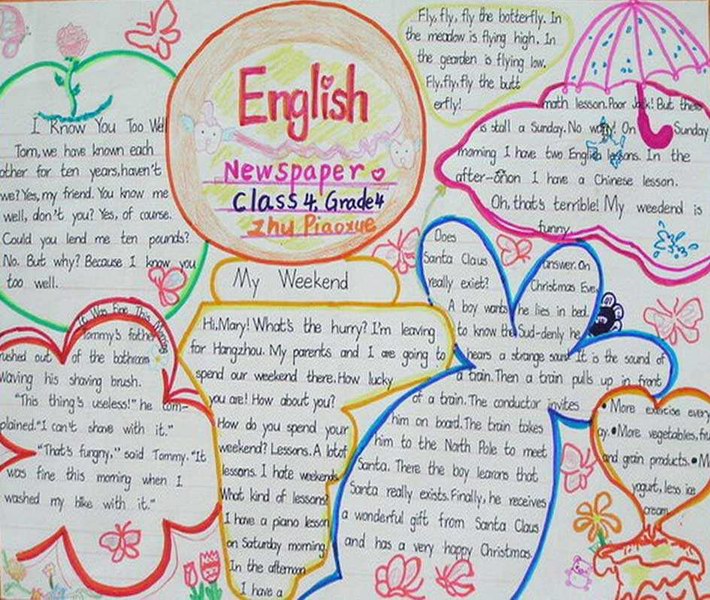 English
Newspaper
Class 4. Grade 4
Zhu Piaoxue
I Know You Too Well
Tom, we have known each
other for ten years, haven't
we? Yes, my friend. You know me
well, don't you? Yes, of course.
Could you lend me ten pounds?
No. But why? Because I know you
too well.
It Was Fine This Morning
Tommy's father
rushed out of the bathroom
waving his shaving brush.
"This thing's useless!" he com-
plained. "I can't shave with it."
"That's fungny," said Tommy. "It
was fine this morning when I
washed my bike with it."
My Weekend
Hi, Mary! What's the hurry? I'm leaving
for Hangzhou. My parents and I are going to
spend our weekend there. How lucky
you are! How about you?
How do you spend your
weekend? Lessons. A lot of
lessons. I hate weekends
What kind of lessons?
I have a piano lesson
on Saturday morning.
In the afternoon
I have a
math lesson. Poor Jack! But there
is stall a Sunday. No worry! On Sunday
morning I have two English lessons. In the
after-noon I have a Chinese lesson.
Oh, that's terrible! My weedend is
funny.
Fly, fly, fly the botterfly. In
the meadow is flying high. In
the gearden is flying low.
Fly, fly, fly the butt
erfly!
Does
Santa Claus
really exiet?
A boy wants
to know the
answer. On
Christmas Eve,
he lies in bed.
Sud-denly he
hears a strange It is the sound of
a train. Then a train pulls up in front
of a train. The conductor invites
him on board. The train takes
him to the North Pole to meet
Santa. There the boy learans that
Santa really exists. Finally, he receives
a wonderful gift from Santa Claus
and has a very happy Christmas.
• More exercise every
ay. • More vegetables, fru
and grain products. • M
yogurt, less ice
cream.